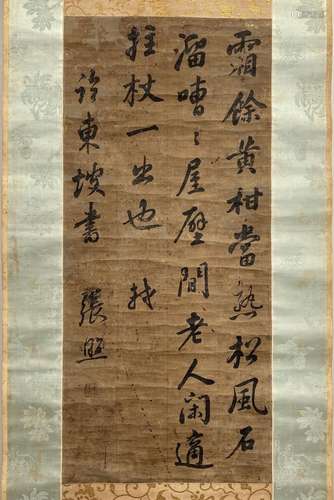 霜餘黃柑當熟松風石
溜嘈〻屋壁間老人閑適
拄杖一出也 軾
臨東坡書 張照